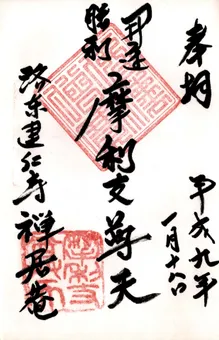 奉拝
平成九年
一月十八日
開運
勝利
摩利支尊天
洛東建仁寺
禅居庵